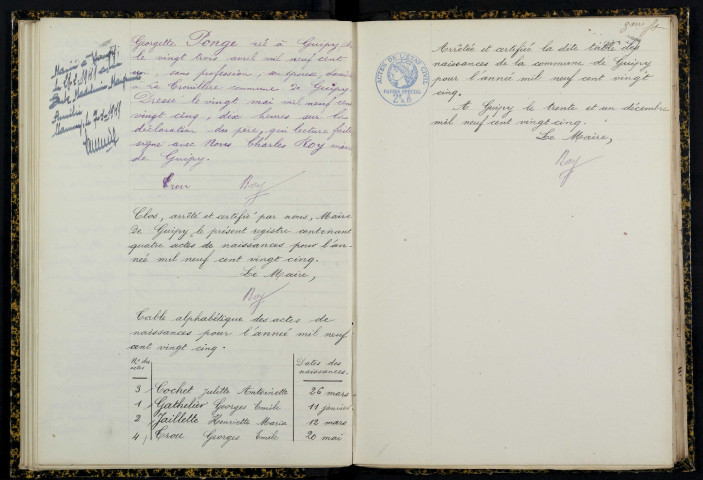 Georgette Ponge née à Guipy le
le vingt trois avril mil neuf cent
sans profession, son épouse,
à La Crouillère commune de Guipy.
Dressé le vingt mai mil neuf cent
vingt cinq, dix heures sur la
déclaration du père, qui lecture faite
signe avec Nous Charles Roy maire
de Guipy.
Roy
Clos, arrêté et certifié par nous, Maire
de Guipy le présent registre contenant
quatre actes de naissances pour l'an-
née mil neuf cent vingt cinq.
Le Maire,
Roy
Table alphabétique des actes de
naissances pour l'année mil neuf
cent vingt cinq.
Nos des actes
Dates des naissances.
3 Cochet Juliette Antoinette 26 mars
1 Gathelier Georges Emile 11 janvier
2 Jaillette Henriette Maria 12 mars
4 Georges Emile 20 mai
ACTES DE L'ETAT CIVIL
PAPIER SPECIAL
Arrêtée et certifié la dite table des
naissances de la commune de Guipy
pour l'année mil neuf cent vingt
cinq.
A Guipy le trente et un décembre
mil neuf cent vingt cinq.
Le Maire,
Roy